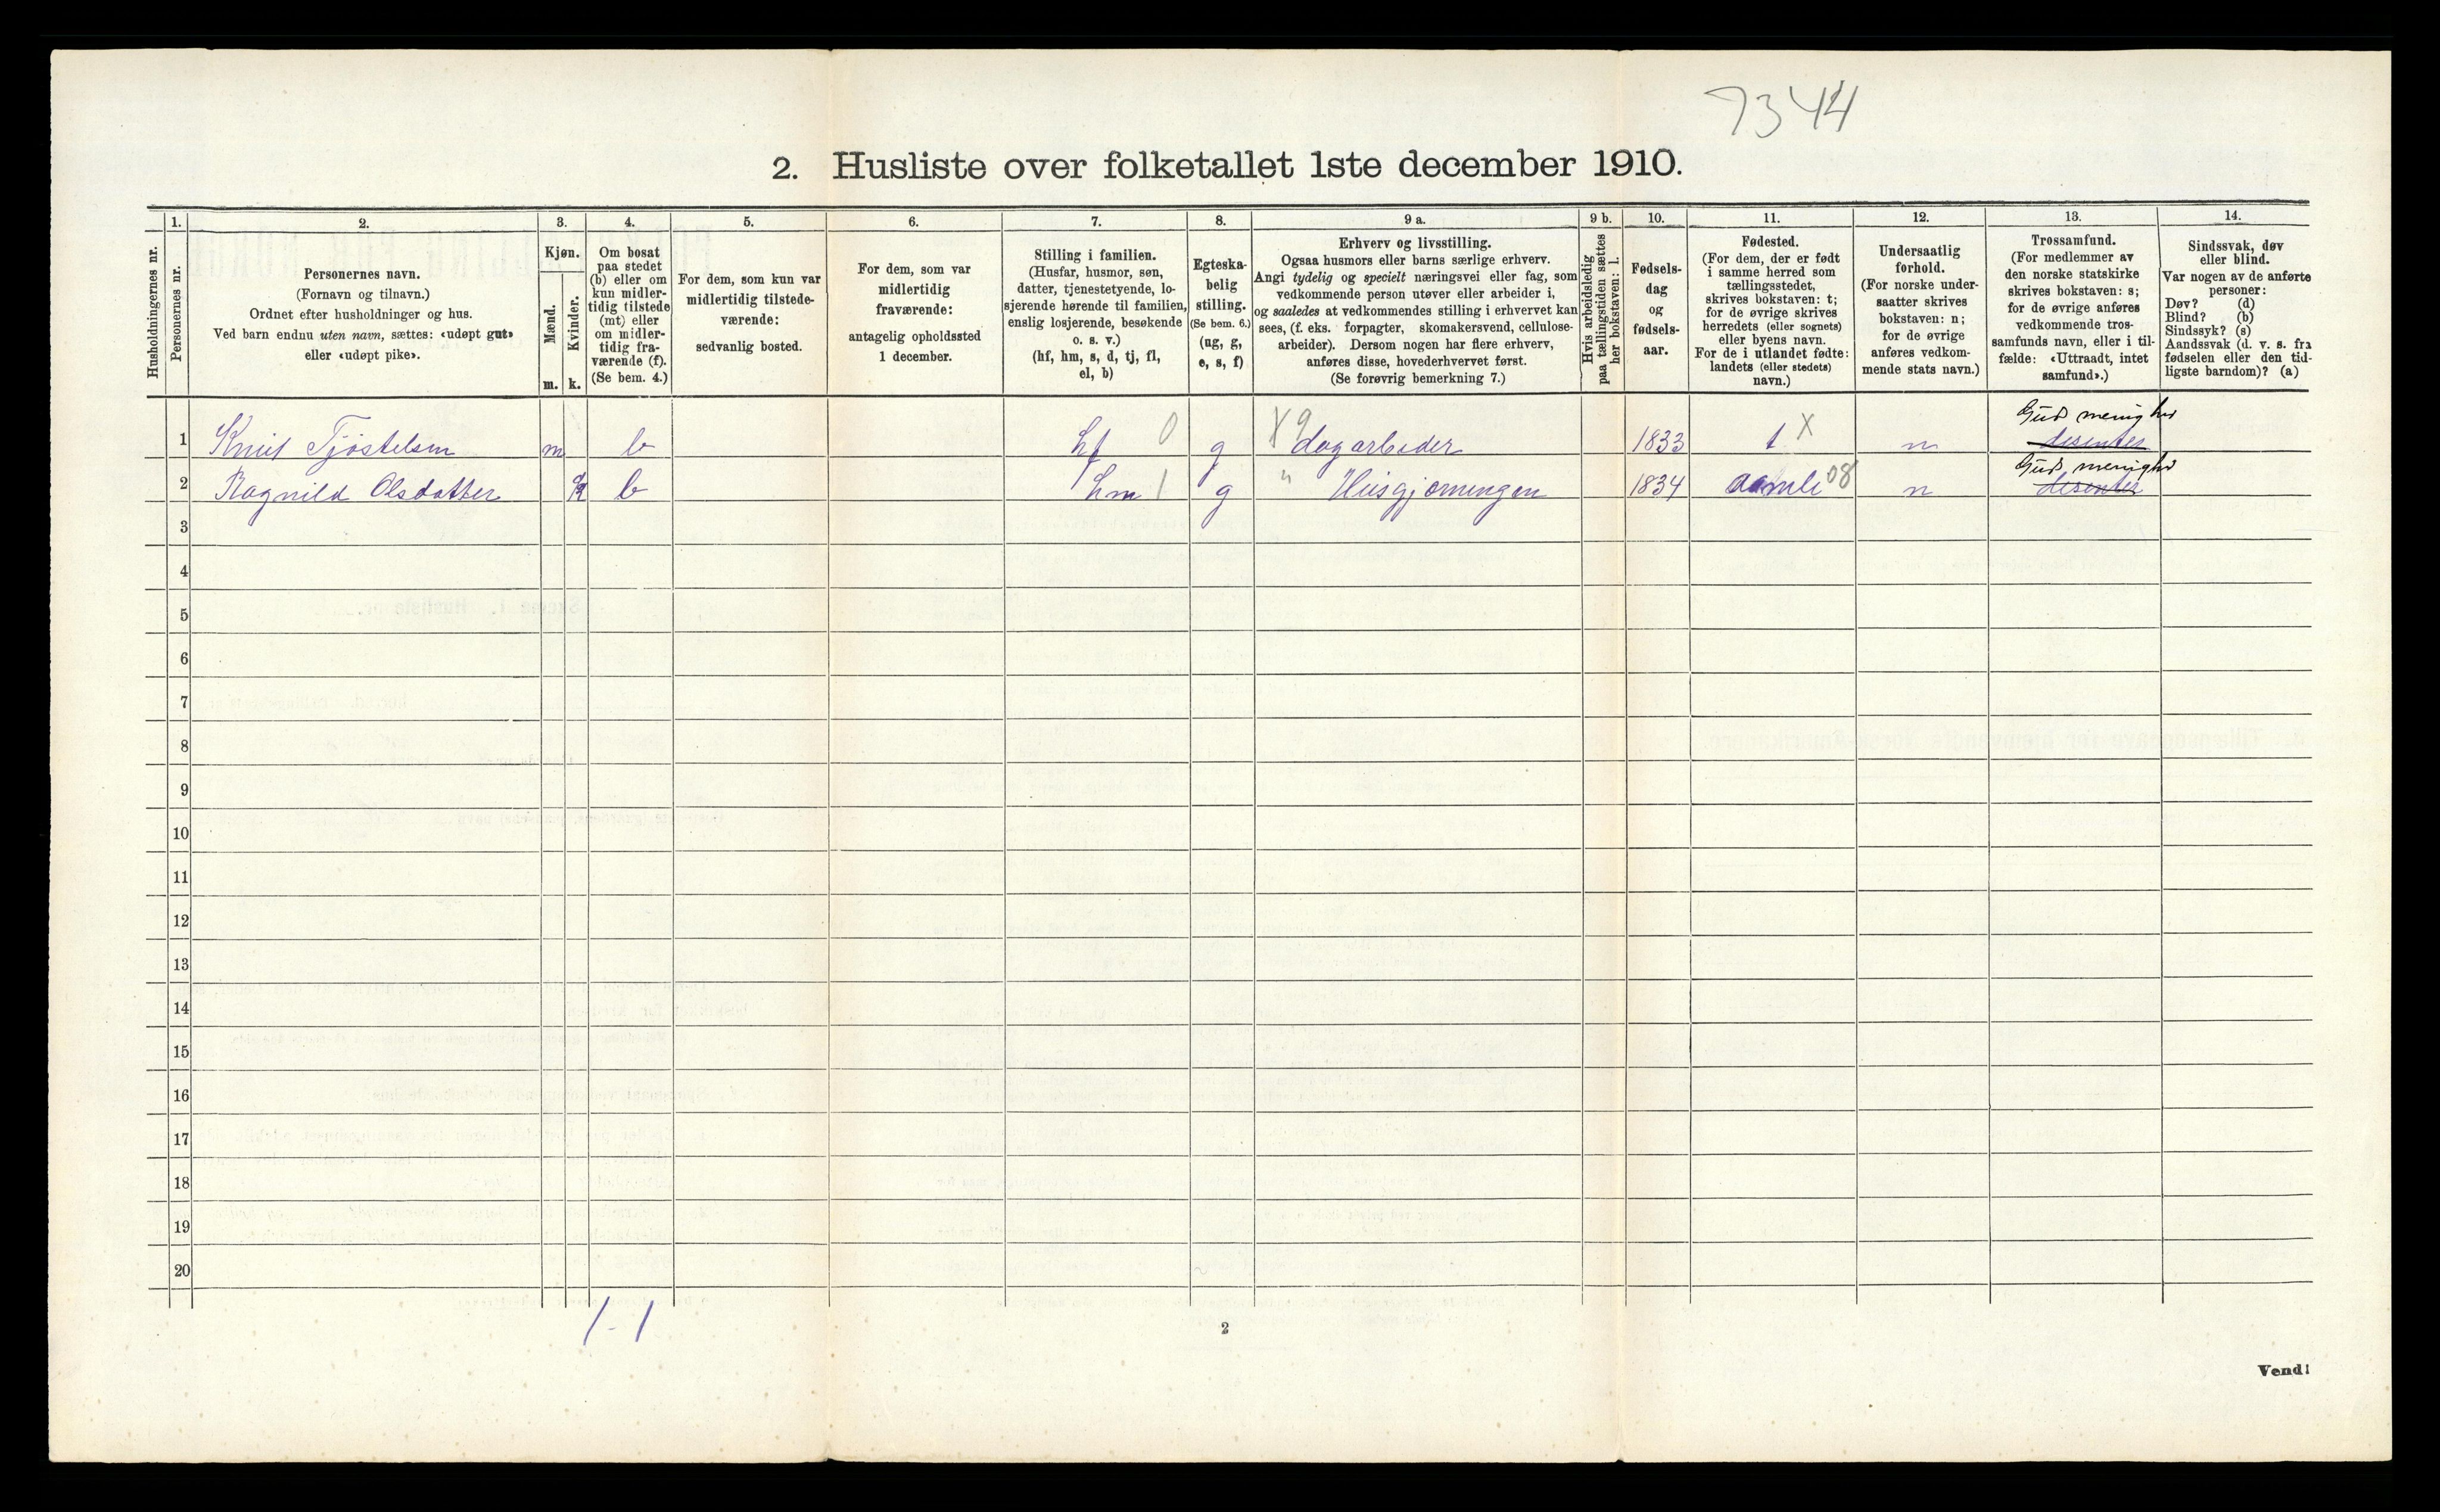 7344
2. Husliste over folketallet 1ste december 1910.
Husholdningernes nr.
1.
Personernes nr.
2.
Personernes navn.
(Fornavn og tilnavn.)
Ordnet efter husholdninger og hus.
Ved barn endnu uten navn, sættes: «udøpt gut»
eller «udøpt pike».
3.
Kjøn.
Mænd.
Kvinder.
m. k.
4.
Om bosat
paa stedet
(b) eller om
kun midler-
tidig tilstede
(mt) eller
om midler-
tidig fra-
værende (f).
(Se bem. 4.)
5.
For dem, som kun var
midlertidig tilstede-
værende:
sedvanlig bosted.
6.
For dem, som var
midlertidig
fraværende:
antagelig opholdssted
1 december.
7.
Stilling i familien.
(Husfar, husmor, søn,
datter, tjenestetyende, lo-
sjerende hørende til familien,
enslig losjerende, besøkende
o. s. v.)
(hf, hm, s, d, tj, fl,
el, b)
8.
Egteska-
belig
stilling.
(Se bem. 6.)
(ug, g,
e, s, f)
9 a.
Erhverv og livsstilling.
Ogsaa husmors eller barns særlige erhverv.
Angi tydelig og specielt næringsvei eller fag, som
vedkommende person utøver eller arbeider i,
og saaledes at vedkommendes stilling i erhvervet kan
sees, (f. eks. forpagter, skomakersvend, cellulose-
arbeider). Dersom nogen har flere erhverv,
anføres disse, hovederhvervet først.
(Se forøvrig bemerkning 7.)
9 b.
Hvis arbeidsledig
paa tællingstiden sættes
her bokstaven: l.
10.
Fødsels-
dag
og
fødsels-
aar.
11.
Fødested.
(For dem, der er født
i samme herred som
tællingsstedet,
skrives bokstaven: t;
for de øvrige skrives
herredets (eller sognets)
eller byens navn.
For de i utlandet fødte:
landets (eller stedets)
navn.)
12.
Undersaatlig
forhold.
(For norske under-
saatter skrives
bokstaven: n;
for de øvrige
anføres vedkom-
mende stats navn.)
13.
Trossamfund.
(For medlemmer av
den norske statskirke
skrives bokstaven: s;
for de øvrige anføres
vedkommende tros-
samfunds navn, eller i til-
fælde: «Uttraadt, intet
samfund».)
14.
Sindssvak, døv
eller blind.
Var nogen av de anførte
personer:
Døv? (d)
Blind? (b)
Sindssyk? (s)
Aandssvak (d. v. s. fra
fødselen eller den tid-
ligste barndom)? (a)
1 Knut Tjöstelsen m b hf 0 g X 9 dagarbeider 1833 t X n Gud menighd desenter
2 Ragnild Olsdatter k b hm 1 g " Husgjerningen 1834 aamli 08 n Gud menighd desenter
3
4
5
6
7
8
9
10
11
12
13
14
15
16
17
18
19
20
1-1
2
Vend!